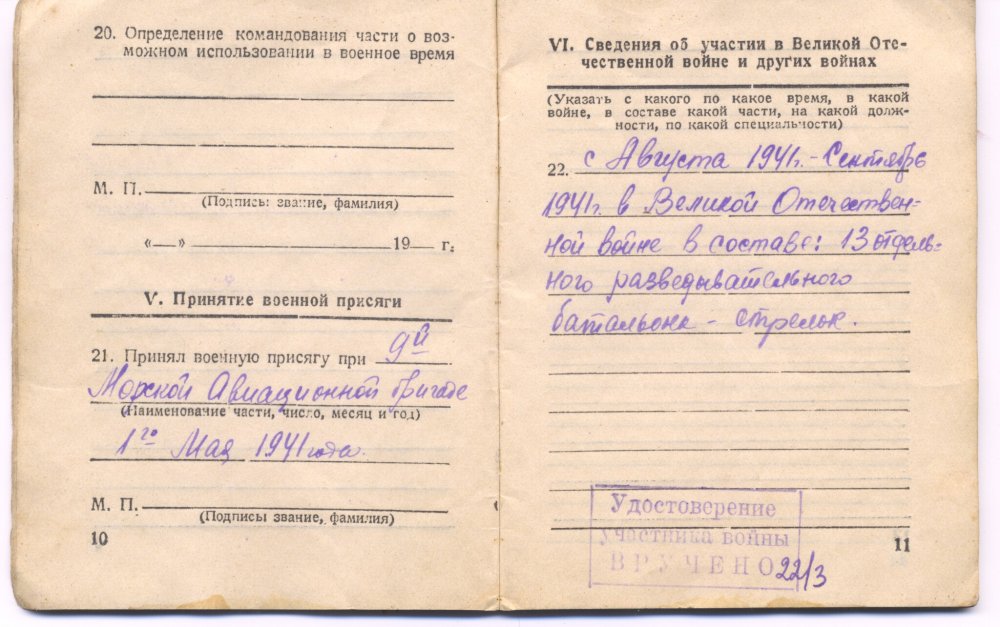 20. Определение командования части о воз-
можном использовании в военное время
М. П.
(Подпись звание, фамилия)
«—» 19— г.
V. Принятие военной присяги
21. Принял военную присягу при 9й
Морской Авиационной бригаде
(Наименование части, число, месяц и год)
1го Мая 1941 года.
М. П.
(Подписы звание, фамилия)
10
VI. Сведения об участии в Великой Оте-
чественной войне и других войнах
(Указать с какого по какое время, в какой
войне, в составе какой части, на какой долж-
ности, по какой специальности)
22. с Августа 1941г. - Сентябрь
1941г. в Великой Отечествен-
ной войне в составе: 13 отдель-
ного разведывательного
батальона - стрелок.
Удостоверение
участника войны
ВРУЧЕНО 22/3
11